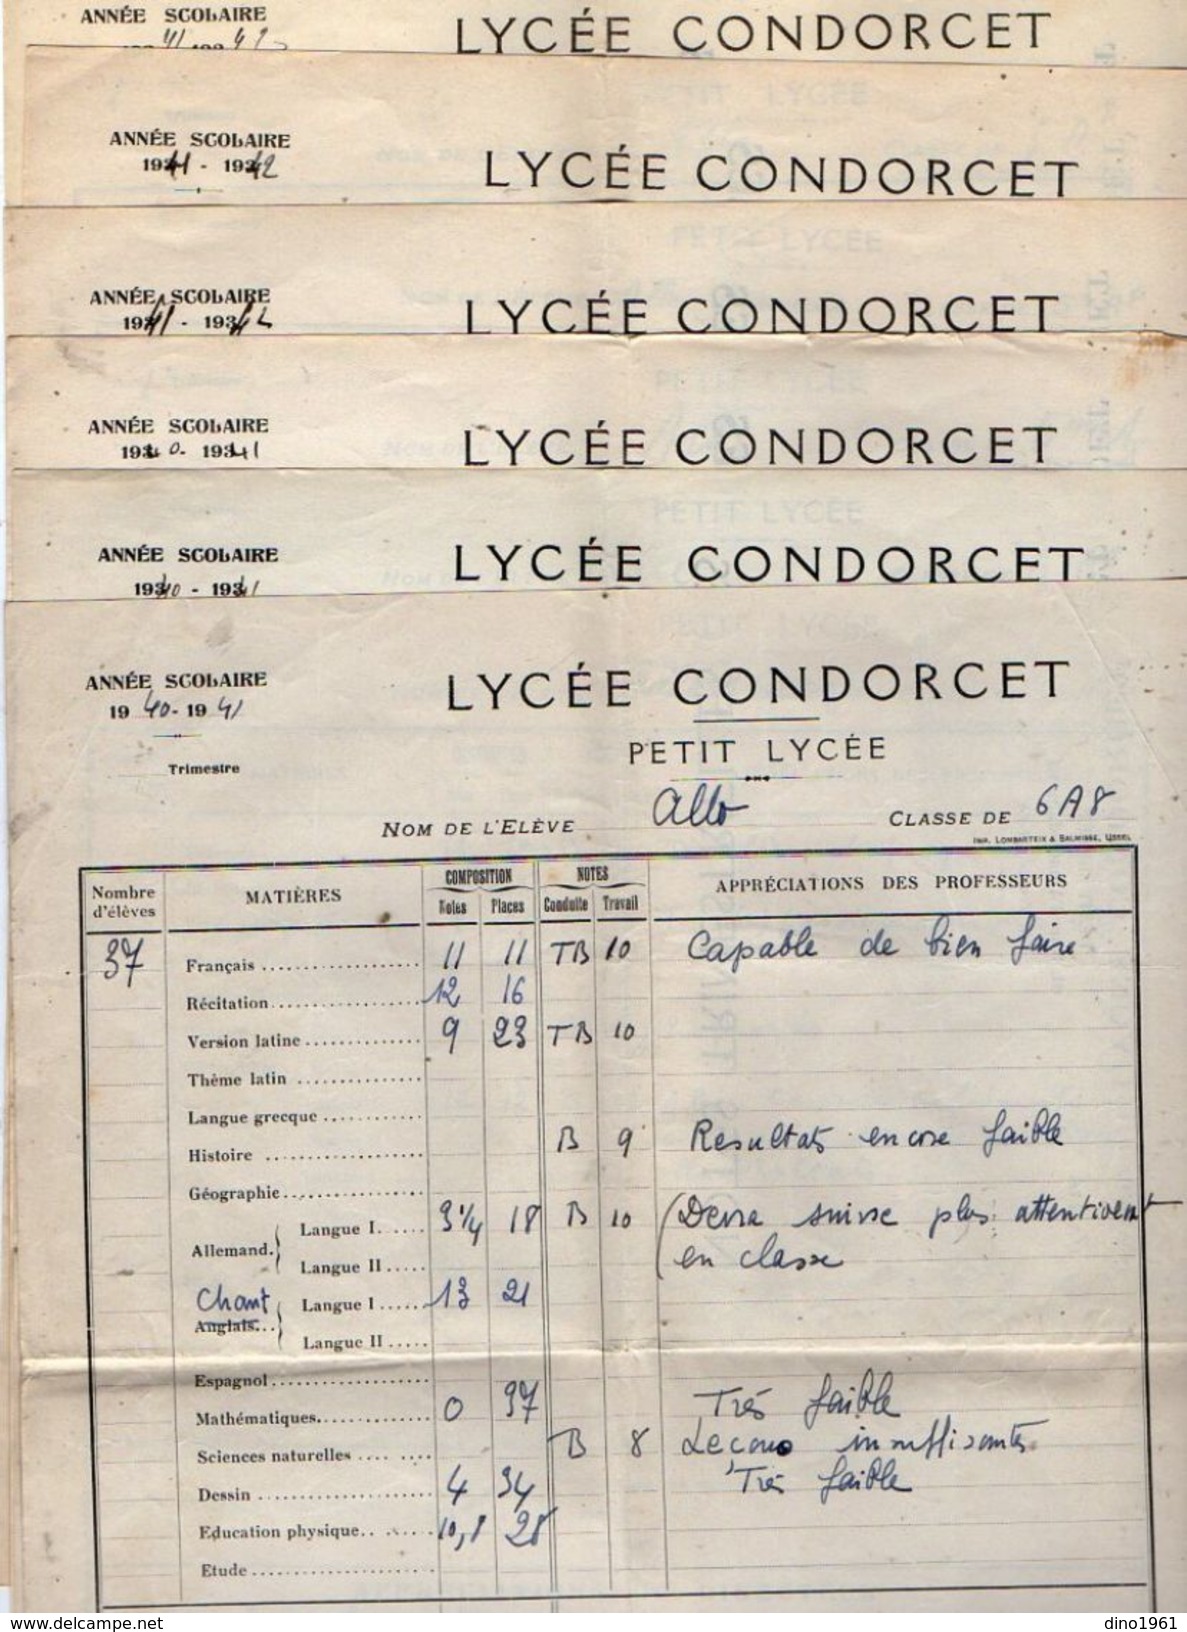 ANNÉE SCOLAIRE
41 42
LYCÉE CONDORCET
ANNÉE SCOLAIRE
1941 - 1942
LYCÉE CONDORCET
ANNÉE SCOLAIRE
1941 - 1942
LYCÉE CONDORCET
ANNÉE SCOLAIRE
1940 - 1941
LYCÉE CONDORCET
ANNÉE SCOLAIRE
1940 - 1941
LYCÉE CONDORCET
ANNÉE SCOLAIRE
1940 - 1941
LYCÉE CONDORCET
PETIT LYCÉE
Trimestre
NOM DE L'ELÈVE Allo CLASSE DE 6A8
IMP. LOMBARTEIX & SALMISSE, USSEL
Nombre d'élèves MATIÈRES COMPOSITION Notes Places NOTES Conduite Travail APPRÉCIATIONS DES PROFESSEURS
37 Français 11 11 TB 10 Capable de bien faire
Récitation 12 16
Version latine 9 23 TB 10
Thème latin
Langue grecque
Histoire B 9 Resultats encore faible
Géographie
Allemand. Langue I. 3 1/4 18 B 10 (Devra suivre plus attentivement
Langue II en classe
Chant Anglais Langue I 13 21
Langue II
Espagnol
Mathématiques 0 37 Très faible
Sciences naturelles B 8 Leçons insuffisantes
Dessin 4 34 Très faible
Education physique 10,8 28
Etude
www.delcampe.net
dino1961